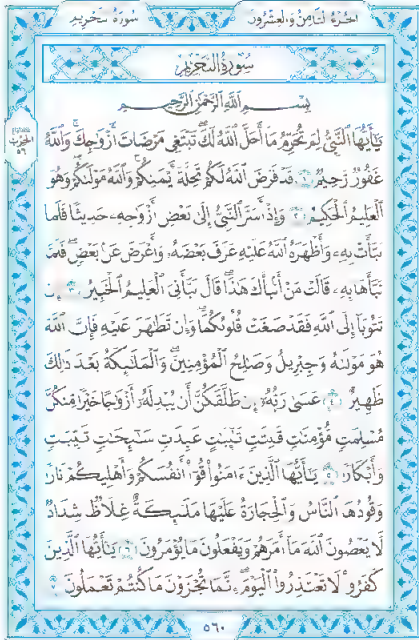 الجزء الثامن والعشرون
سورة التحريم
سورة التحريم
بسم الله الرحمن الرحيم
يَٰٓأَيُّهَا ٱلنَّبِيُّ لِمَ تُحَرِّمُ مَآ أَحَلَّ ٱللَّهُ لَكَ ۖ تَبْتَغِي مَرْضَاتَ أَزْوَٰجِكَ ۚ وَٱللَّهُ
غَفُورٌ رَّحِيمٌ ١ قَدْ فَرَضَ ٱللَّهُ لَكُمْ تَحِلَّةَ أَيْمَٰنِكُمْ ۚ وَٱللَّهُ مَوْلَىٰكُمْ ۖ وَهُوَ
ٱلْعَلِيمُ ٱلْحَكِيمُ ٢ وَإِذْ أَسَرَّ ٱلنَّبِيُّ إِلَىٰ بَعْضِ أَزْوَٰجِهِۦ حَدِيثًا فَلَمَّا
نَبَّأَتْ بِهِۦ وَأَظْهَرَهُ ٱللَّهُ عَلَيْهِ عَرَّفَ بَعْضَهُۥ وَأَعْرَضَ عَنۢ بَعْضٍ ۖ فَلَمَّا
نَبَّأَهَا بِهِۦ قَالَتْ مَنْ أَنۢبَأَكَ هَٰذَا ۖ قَالَ نَبَّأَنِيَ ٱلْعَلِيمُ ٱلْخَبِيرُ ٣ إِن
تَتُوبَآ إِلَى ٱللَّهِ فَقَدْ صَغَتْ قُلُوبُكُمَا ۖ وَإِن تَظَٰهَرَا عَلَيْهِ فَإِنَّ ٱللَّهَ
هُوَ مَوْلَىٰهُ وَجِبْرِيلُ وَصَٰلِحُ ٱلْمُؤْمِنِينَ ۖ وَٱلْمَلَٰٓئِكَةُ بَعْدَ ذَٰلِكَ
ظَهِيرٌ ٤ عَسَىٰ رَبُّهُۥٓ إِن طَلَّقَكُنَّ أَن يُبْدِلَهُۥٓ أَزْوَٰجًا خَيْرًا مِّنكُنَّ
مُسْلِمَٰتٍ مُّؤْمِنَٰتٍ قَٰنِتَٰتٍ تَٰٓئِبَٰتٍ عَٰبِدَٰتٍ سَٰٓئِحَٰتٍ ثَيِّبَٰتٍ
وَأَبْكَارًا ٥ يَٰٓأَيُّهَا ٱلَّذِينَ ءَامَنُوا۟ قُوٓا۟ أَنفُسَكُمْ وَأَهْلِيكُمْ نَارًا
وَقُودُهَا ٱلنَّاسُ وَٱلْحِجَارَةُ عَلَيْهَا مَلَٰٓئِكَةٌ غِلَاظٌ شِدَادٌ
لَّا يَعْصُونَ ٱللَّهَ مَآ أَمَرَهُمْ وَيَفْعَلُونَ مَا يُؤْمَرُونَ ٦ يَٰٓأَيُّهَا ٱلَّذِينَ
كَفَرُوا۟ لَا تَعْتَذِرُوا۟ ٱلْيَوْمَ ۖ إِنَّمَا تُجْزَوْنَ مَا كُنتُمْ تَعْمَلُونَ ٧
الحزب
٥٦
٥٦٠